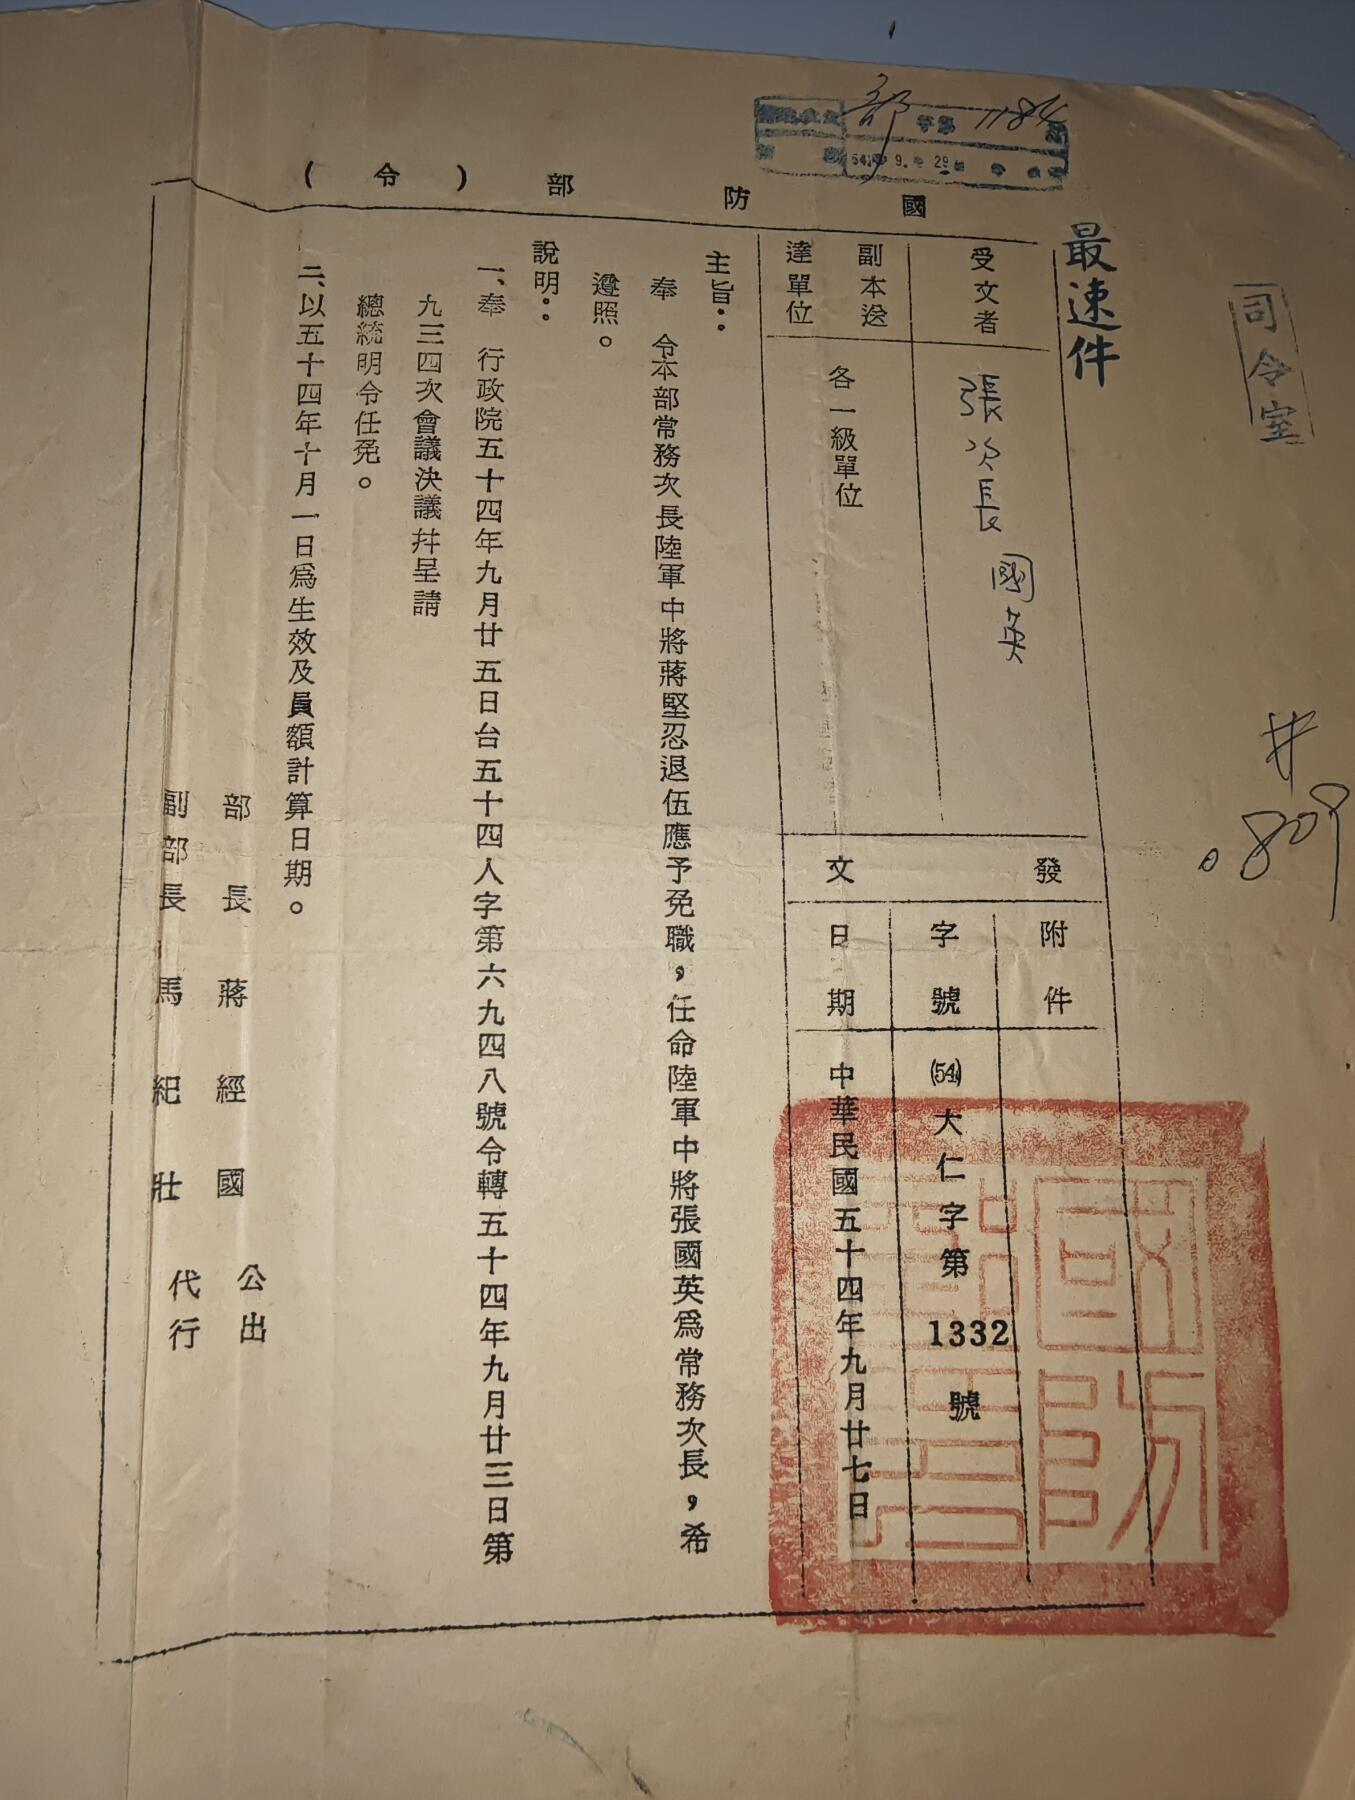 司令室
#809.
最速件
部 字第 1184 號
54年 9. 29
國防部（令）
受文者
張次長 國英
副本送達單位
各一級單位
發文
附件
字號
(54)大仁字第 1332 號
日期
中華民國五十四年九月廿七日
國防部印
主旨：
奉　令本部常務次長陸軍中將蔣堅忍退伍應予免職，任命陸軍中將張國英為常務次長，希
遵照。
說明：
一、奉　行政院五十四年九月廿五日台五十四人字第六九四八號令轉五十四年九月廿三日第
九三四次會議決議幷呈請
總統明令任免。
二、以五十四年十月一日為生效及員額計算日期。
部長 蔣經國 公出
副部長 馬紀壯 代行